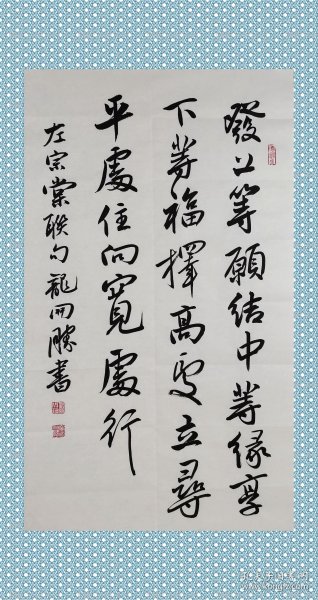 發上等願結中等緣享
下等福擇高處立尋
平處住向寬處行
左宗棠联句龍開勝書